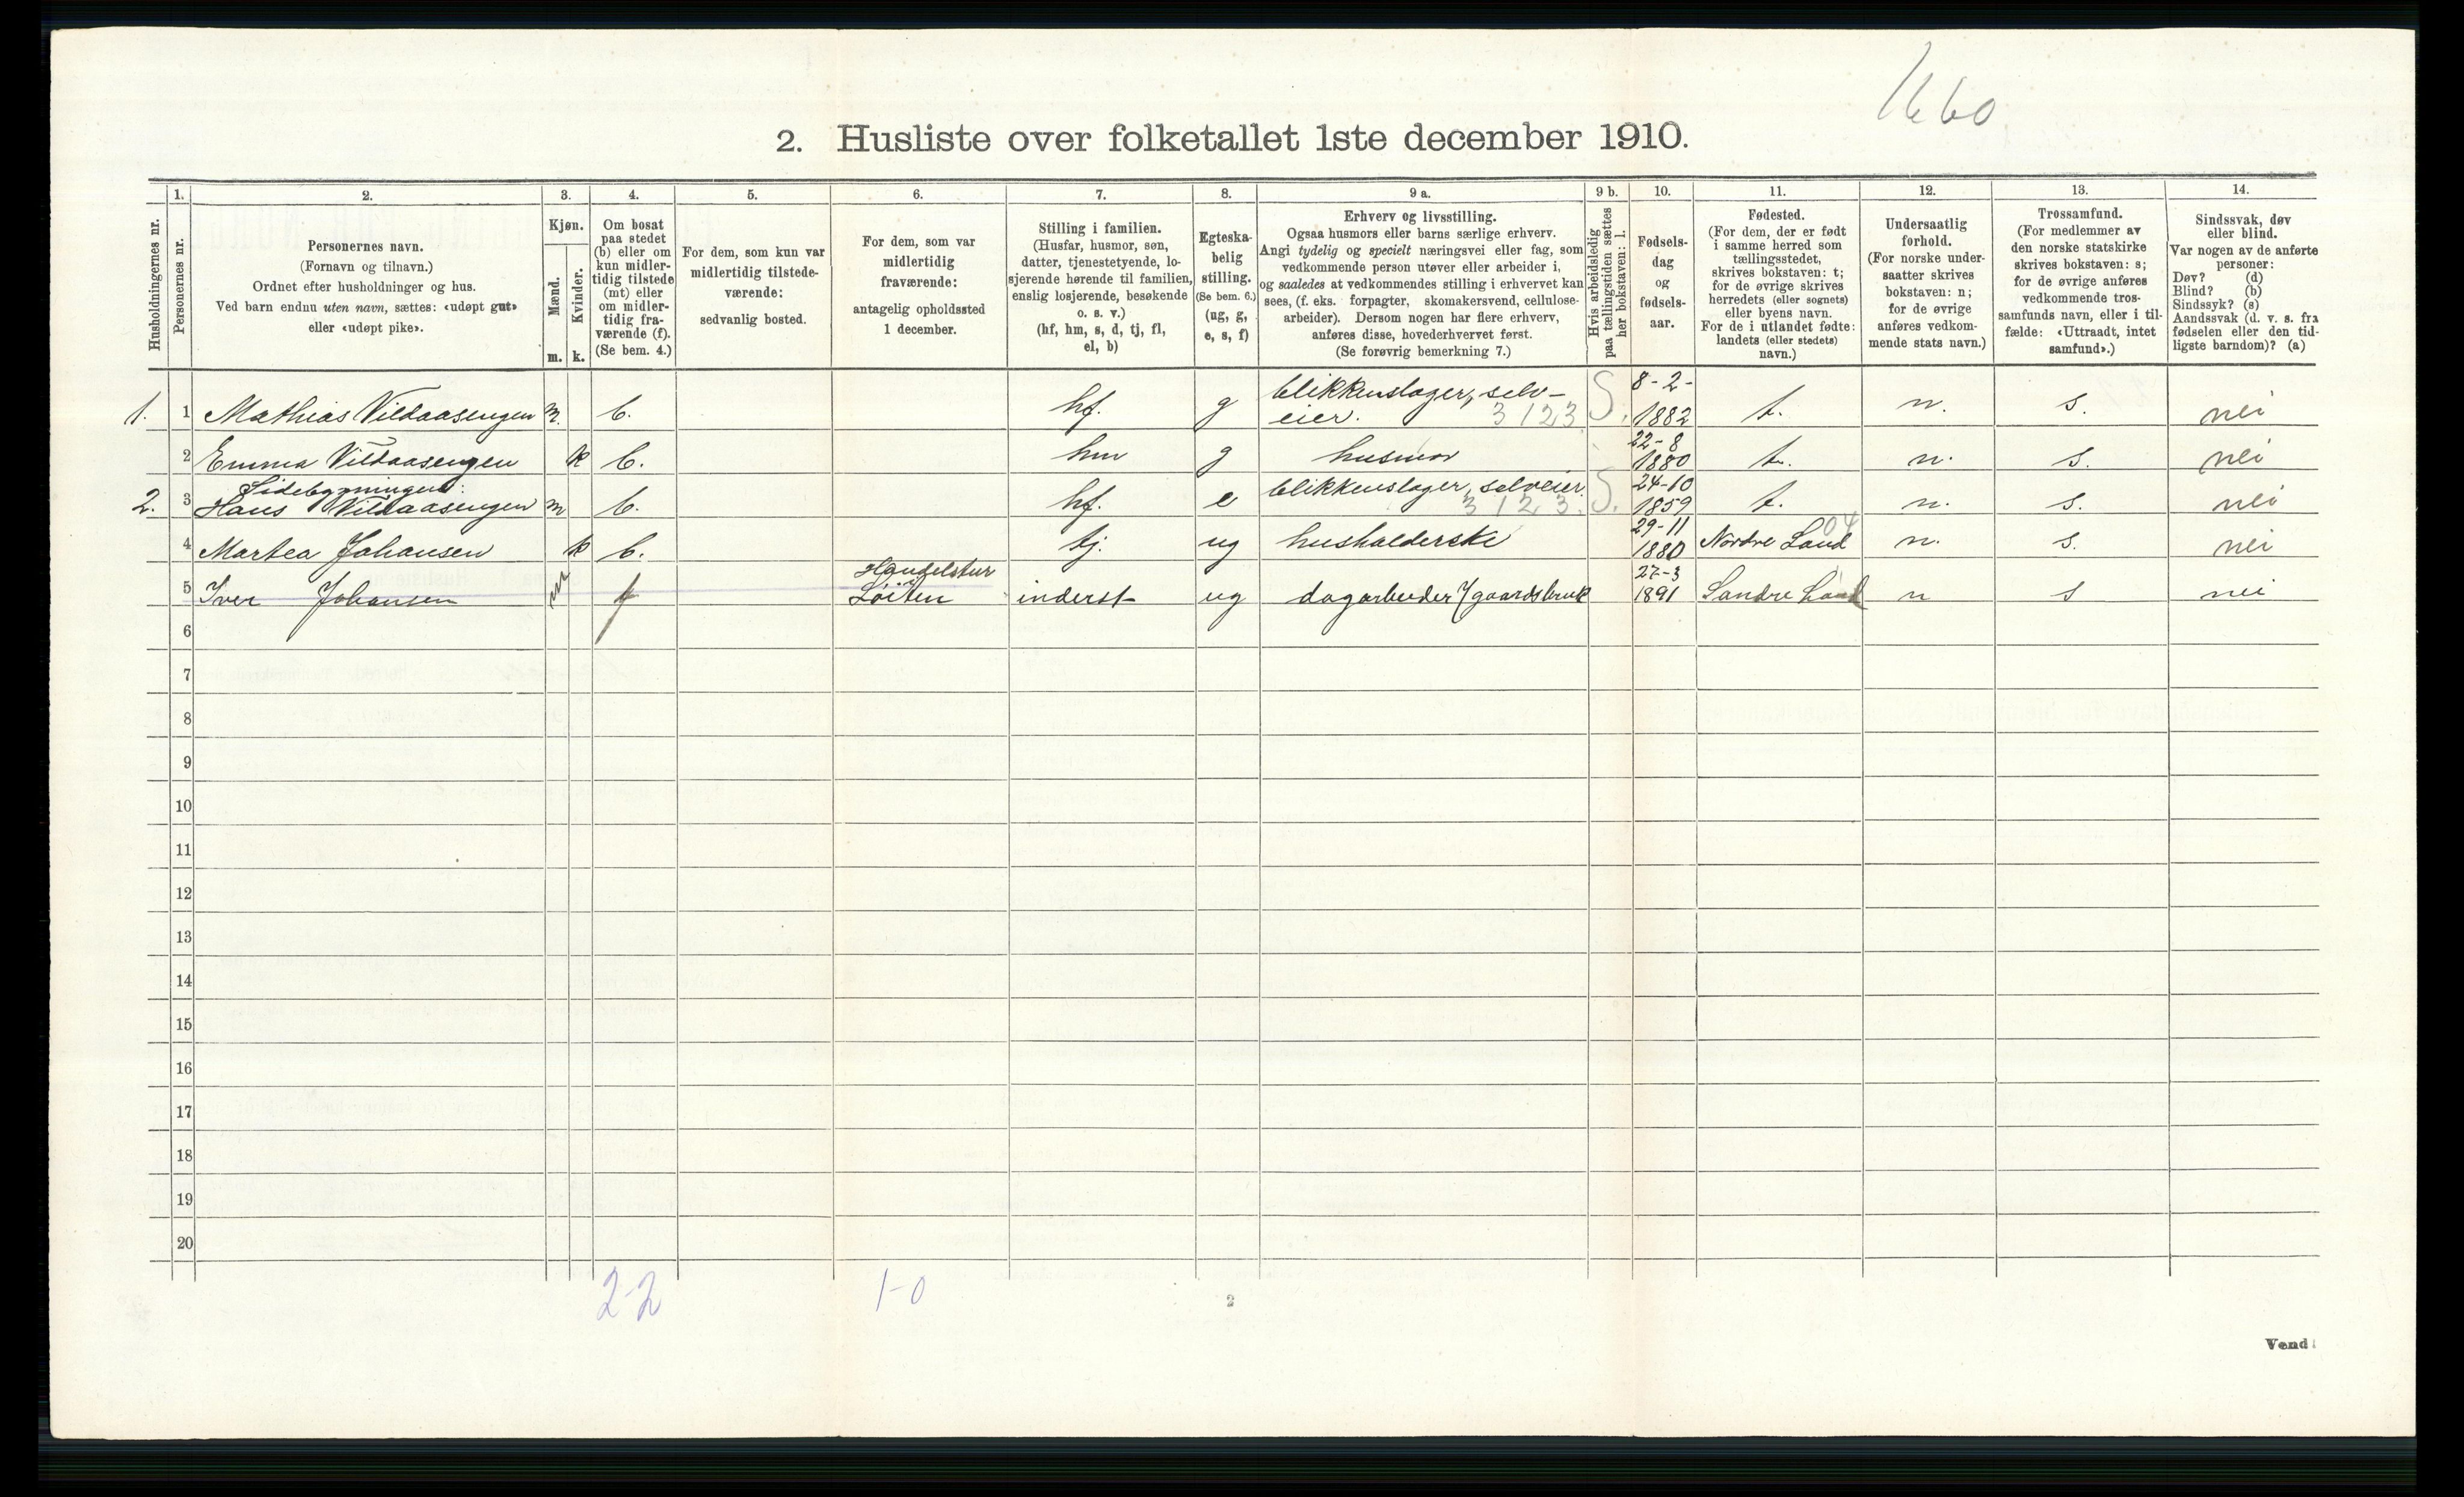 1660
2. Husliste over folketallet 1ste december 1910.
Husholdningernes nr.
1.
Personernes nr.
2.
Personernes navn.
(Fornavn og tilnavn.)
Ordnet efter husholdninger og hus.
Ved barn endnu uten navn, sættes: «udøpt gut»
eller «udøpt pike».
3.
Kjøn.
Mænd.
Kvinder.
m. k.
4.
Om bosat
paa stedet
(b) eller om
kun midler-
tidig tilstede
(mt) eller
om midler-
tidig fra-
værende (f).
(Se bem. 4.)
5.
For dem, som kun var
midlertidig tilstede-
værende:
sedvanlig bosted.
6.
For dem, som var
midlertidig
fraværende:
antagelig opholdssted
1 december.
7.
Stilling i familien.
(Husfar, husmor, søn,
datter, tjenestetyende, lo-
sjerende hørende til familien,
enslig losjerende, besøkende
o. s. v.)
(hf, hm, s, d, tj, fl,
el, b)
8.
Egteska-
belig
stilling.
(Se bem. 6.)
(ug, g,
e, s, f)
9 a.
Erhverv og livsstilling.
Ogsaa husmors eller barns særlige erhverv.
Angi tydelig og specielt næringsvei eller fag, som
vedkommende person utøver eller arbeider i,
og saaledes at vedkommendes stilling i erhvervet kan
sees, (f. eks. forpagter, skomakersvend, cellulose-
arbeider). Dersom nogen har flere erhverv,
anføres disse, hovederhvervet først.
(Se forøvrig bemerkning 7.)
9 b.
Hvis arbeidsledig
paa tællingstiden sættes
her bokstaven: l.
10.
Fødsels-
dag
og
fødsels-
aar.
11.
Fødested.
(For dem, der er født
i samme herred som
tællingsstedet,
skrives bokstaven: t;
for de øvrige skrives
herredets (eller sognets)
eller byens navn.
For de i utlandet fødte:
landets (eller stedets)
navn.)
12.
Undersaatlig
forhold.
(For norske under-
saatter skrives
bokstaven: n;
for de øvrige
anføres vedkom-
mende stats navn.)
13.
Trossamfund.
(For medlemmer av
den norske statskirke
skrives bokstaven: s;
for de øvrige anføres
vedkommende tros-
samfunds navn, eller i til-
fælde: «Uttraadt, intet
samfund».)
14.
Sindssvak, døv
eller blind.
Var nogen av de anførte
personer:
Døv? (d)
Blind? (b)
Sindssyk? (s)
Aandssvak (d. v. s. fra
fødselen eller den tid-
ligste barndom)? (a)
1. 1 Mathias Vildaasengen m. b. hf. g blikkenslager, selv-
eier. 3123 S. 8-2-
1882 t. n. s. nei
2 Emma Vildaasengen k b. hm g husmor 22-8
1880 t. n. s. nei
Sidebygningen:
2. 3 Hans Vildaasengen m b. hf. e blikkenslager, selveier
3123. S. 24-10
1859 t. n. s. nei
4 Martea Johansen k b. tj. ug husholderske 29-11
1880 Nordre Land 04 n. s. nei
5 Iver Johansen m f Handelstur
Löiten inderst ug dagarbeider I gaardsbruk 27-3
1891 Søndre Land n s nei
6
7
8
9
10
11
12
13
14
15
16
17
18
19
20
2-2 1-0
2
Vend!